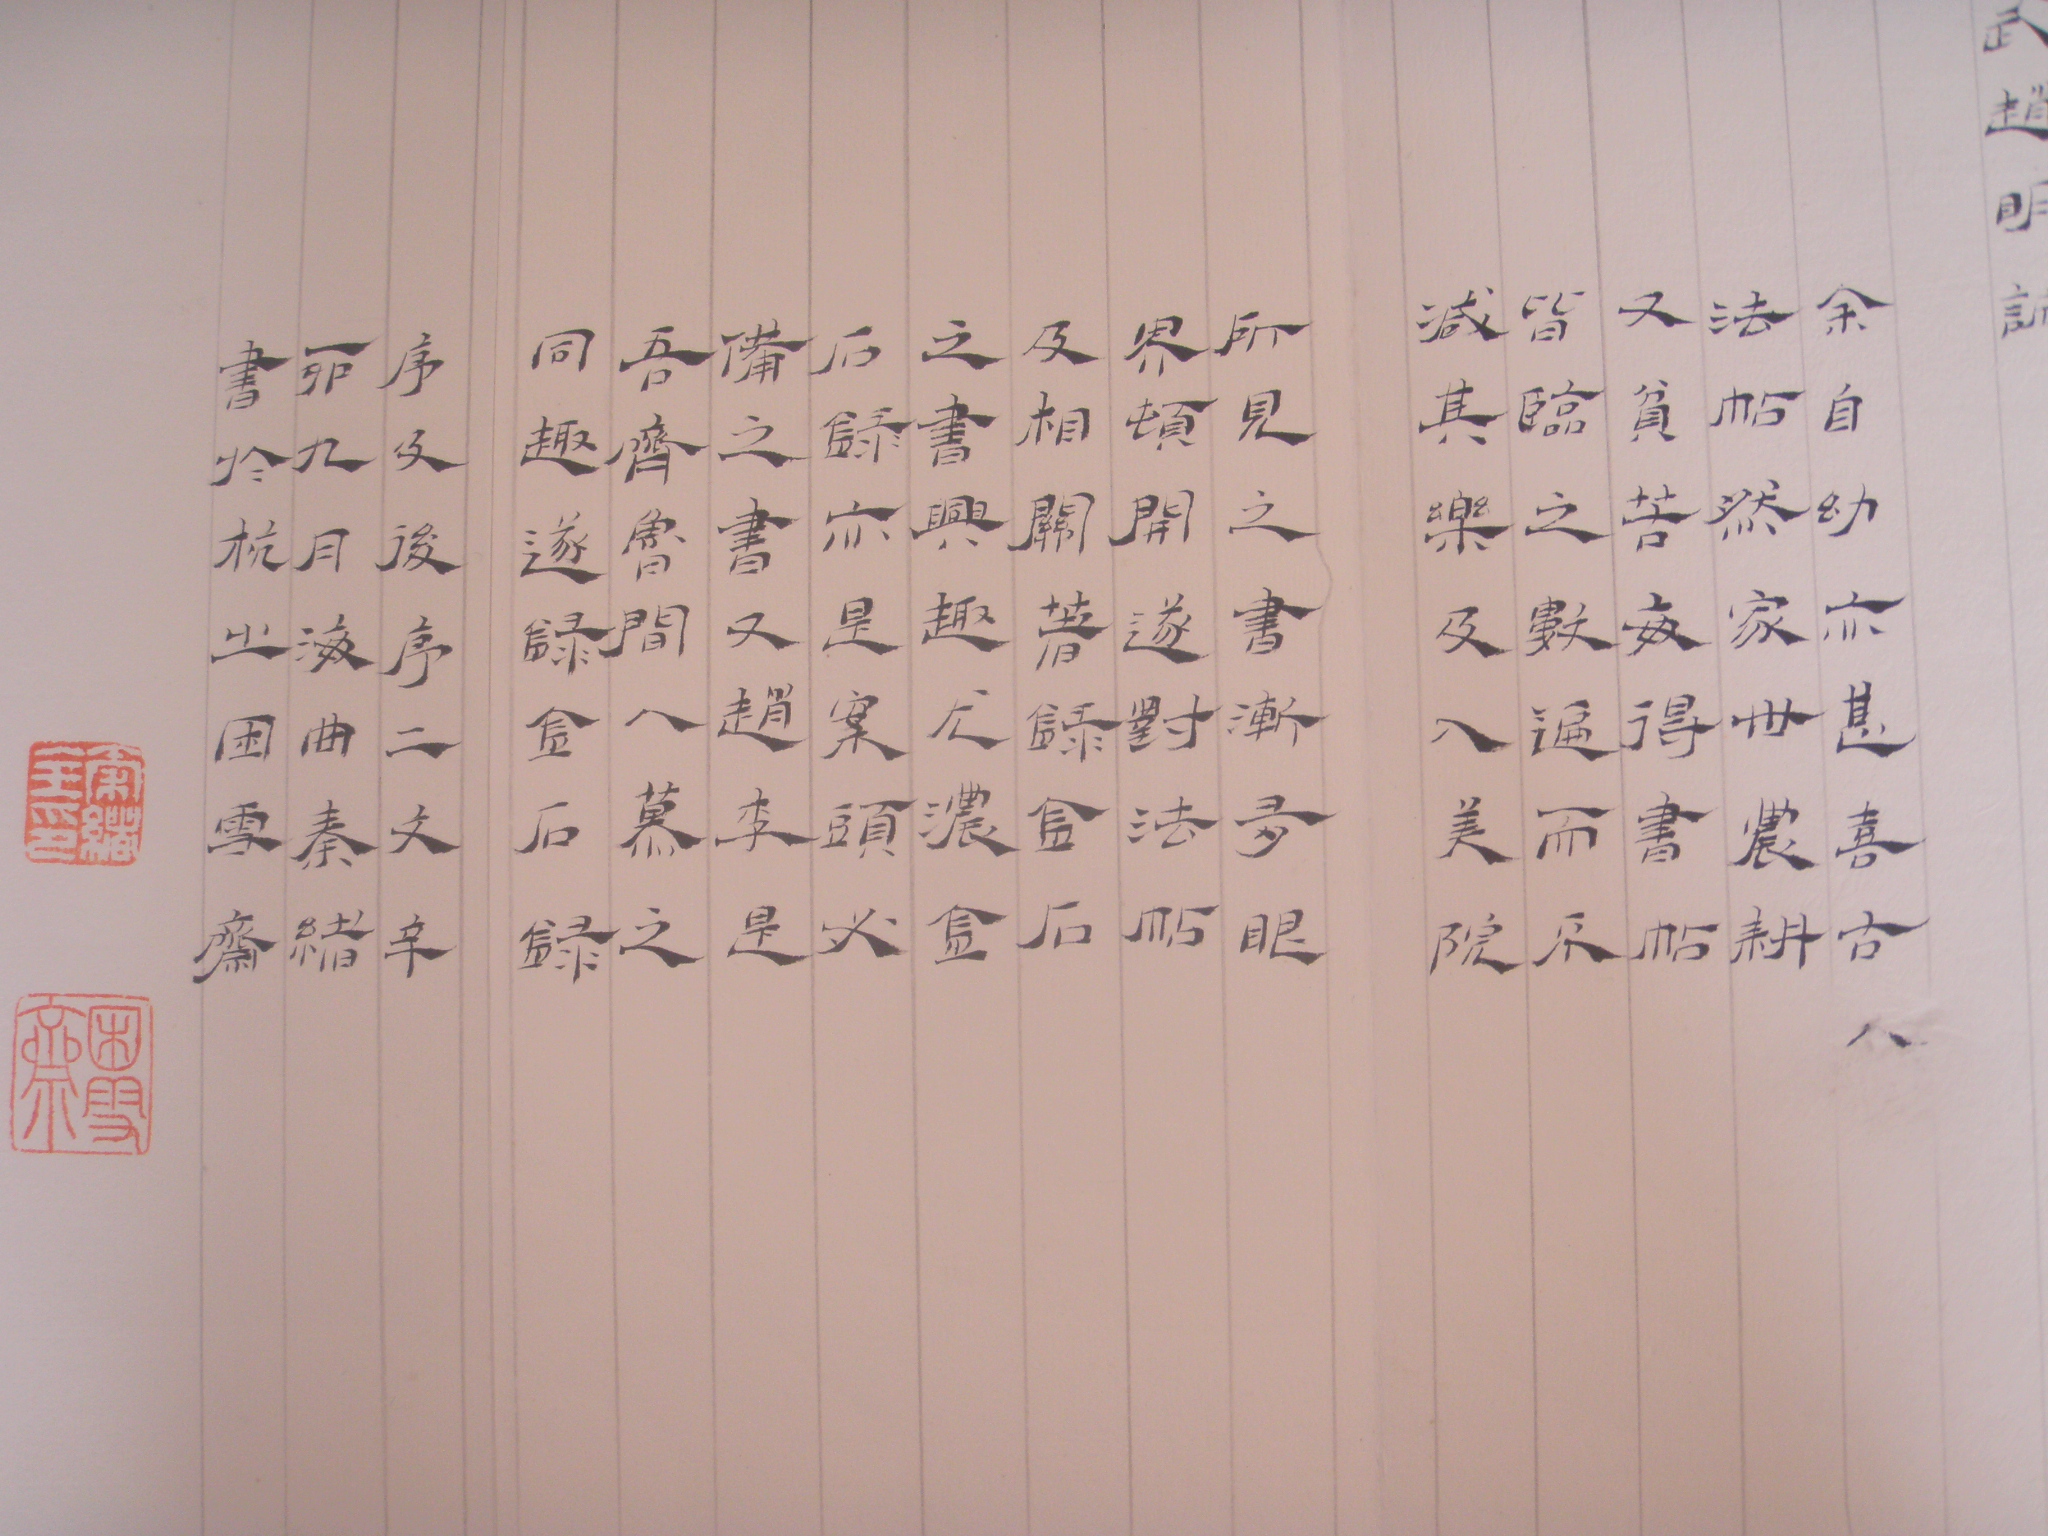 武趙明誠
余自幼亦甚喜古人
法帖然家世農耕
又貧苦每得書帖
皆臨之數遍而不
減其樂及入美院
所見之書漸多眼
界頓開遂對法帖
及相關著錄金石
之書興趣尤濃金
石錄亦是案頭必
備之書又趙李是
吾齊魯間人慕之
同趣遂錄金石錄
序及後序二文辛
卯九月海曲秦緒
書於杭之困雪齋
秦緒
困雪齋